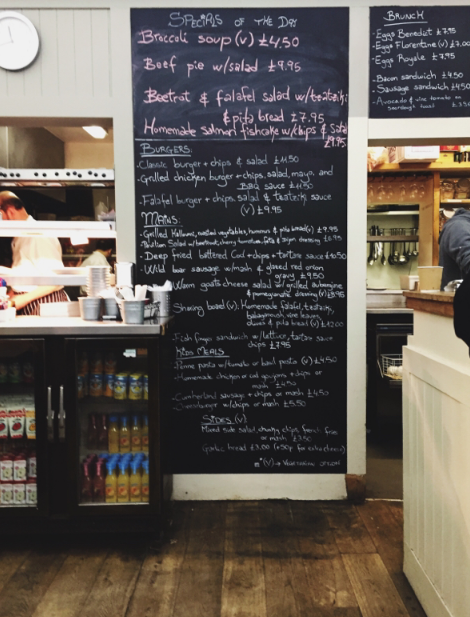 Specials of the Day
Broccoli soup (v) £4.50
Beef pie w/salad £9.95
Beetrot & falafel salad w/tzatziki
& pita bread £7.95
Homemade salmon fishcake w/chips & salad
£9.95
Burgers:
-Classic burger + chips & salad
-Grilled chicken burger + chips, salad, mayo, and
BBQ sauce
-Falafel burger + chips, salad & tzatziki sauce
(v) £9.95
Mains:
-Grilled Halloumi, roasted vegetables, houmous & pita bread (v) £9.95
Salad w/beetroot, cherry tomatoes, feta & dressing
-Deep fried battered Cod + chips + tartare sauce £10.50
-Wild boar sausage w/mash & glazed red onion
gravy £9.50
-Warm goats cheese salad w/grilled aubergine
& pomegranate dressing (v) £8.95
Sharing board (v). Homemade falafel, tzatziki,
babaganoush, vine leaves,
olives & pita bread (v) £12.00
-Fish finger sandwich w/lettuce, tartar sauce
chips £7.95
Kids Meals
-Penne pasta w/tomato or basil pesto (v) £4.50
-Homemade chicken or cod goujons + chips or
mash £4.50
-Cumberland sausage + chips or mash £4.50
w/chips or mash £5.50
Sides (v)
Mixed side salad, chunky chips, french fries
or mash £3.50
Garlic bread £3.00 (+50p for extra cheese)
(v) → Vegetarian option
Brunch
-Eggs Benedict £7.95
-Eggs Florentine (v) £7.00
-Eggs Royale £7.95
-Bacon sandwich £4.50
-Sausage sandwich £4.50
-Avocado & vine tomato on
sourdough toast